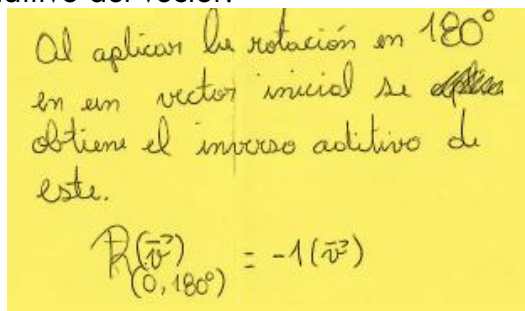 Al aplicar la rotación en 180°
en un vector inicial se
obtiene el inverso aditivo de
este.
R(v⃗) = -1(v⃗)
(0,180°)